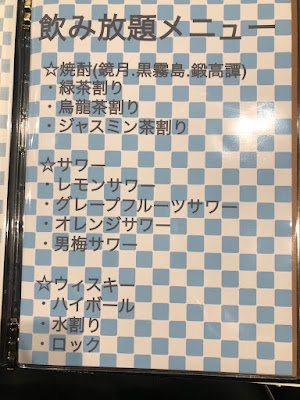 飲み放題メニュー
☆焼酎(鏡月.黒霧島.鍛高譚)
・緑茶割り
・烏龍茶割り
・ジャスミン茶割り
☆サワー
・レモンサワー
・グレープフルーツサワー
・オレンジサワー
・男梅サワー
☆ウィスキー
・ハイボール
・水割り
・ロック